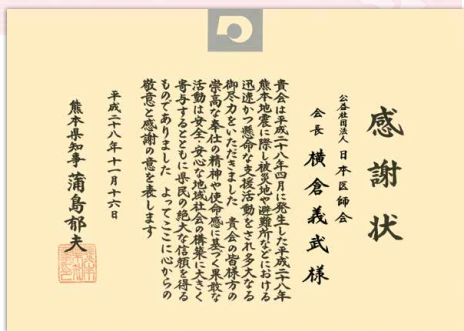 感謝状
公益社団法人 日本医師会
会長 横倉義武 様
貴会は平成二十八年四月に発生した平成二十八年
熊本地震に際し被災地や避難所などにおける
迅速かつ懸命な支援活動をされ多大なる
御尽力をいただきました 貴会の皆様方の
崇高な奉仕の精神や使命感に基づく果敢な
活動は安全・安心な地域社会の構築に大きく
寄与するとともに県民の絶大な信頼を得る
ものでありました よってここに心からの
敬意と感謝の意を表します
平成二十八年十一月十六日
熊本県知事 蒲島郁夫